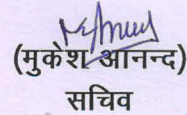 (मुकेश आनन्द)
सचिव